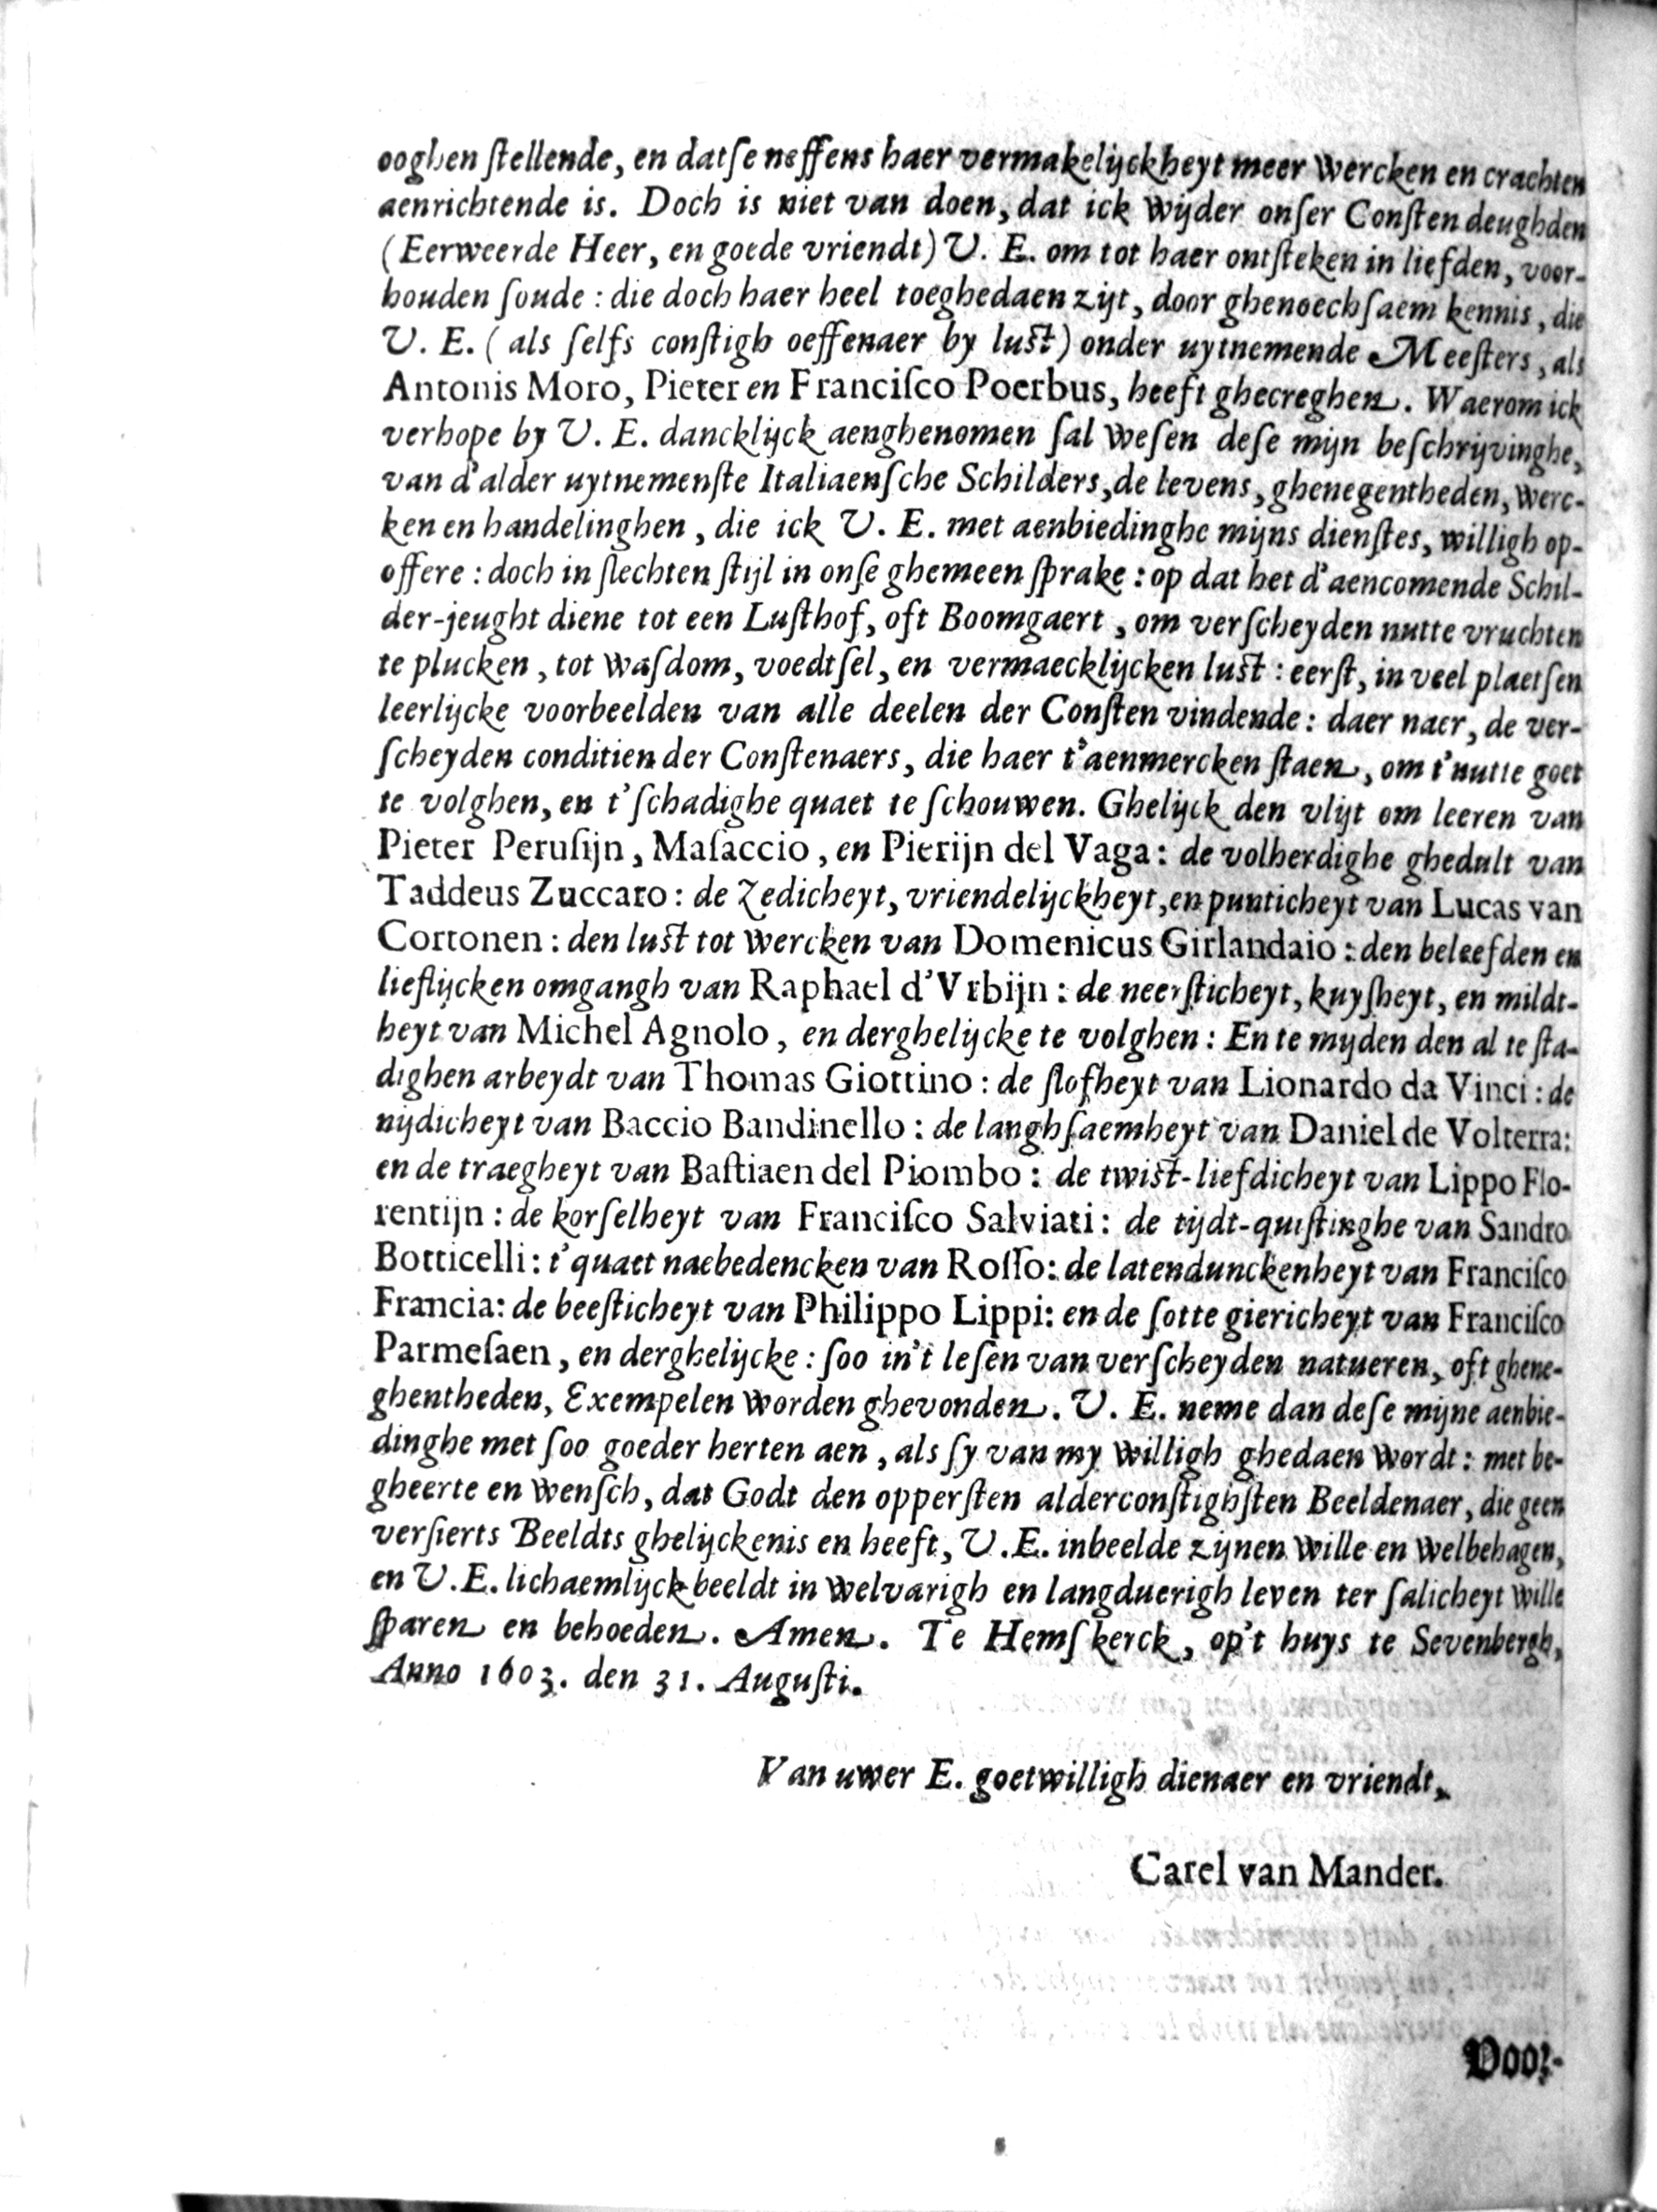 ooghen ſtellende, en datſe neffens haer vermakelijckheyt meer wercken en crachten
aenrichtende is. Doch is niet van doen, dat ick wijder onſer Conſten deughden
(Eerweerde Heer, en goede vriendt) V. E. om tot haer ontſteken in liefden, voor-
houden ſoude : die doch haer heel toeghedaen zijt, door ghenoechſaem kennis, die
V. E. ( als ſelfs conſtigh oeffenaer by luſt) onder uytnemende Meeſters, als
Antonis Moro, Pieter en Franciſco Poerbus, heeft ghecreghen. Waerom ick
verhope by V. E. dancklijck aenghenomen ſal weſen deſe mijn beſchrijvinghe,
van d'alder uytnemenſte Italiaenſche Schilders, de levens, ghenegentheden, werc-
ken en handelinghen, die ick V. E. met aenbiedinghe mijns dienſtes, willigh op-
offere : doch in ſlechten ſtijl in onſe ghemeen ſprake : op dat het d'aencomende Schil-
der-jeught diene tot een Luſthof, oft Boomgaert, om verſcheyden nutte vruchten
te plucken, tot waſdom, voedtſel, en vermaecklijcken luſt : eerſt, in veel plaetſen
leerlijcke voorbeelden van alle deelen der Conſten vindende : daer naer, de ver-
ſcheyden conditien der Conſtenaers, die haer t'aenmercken ſtaen, om t'nutte goet
te volghen, en t'ſchadighe quaet te ſchouwen. Ghelijck den vlijt om leeren van
Pieter Peruſijn, Maſaccio, en Pierijn del Vaga: de volherdighe ghedult van
Taddeus Zuccaro: de zedicheyt, vriendelijckheyt, en punticheyt van Lucas van
Cortonen: den luſt tot wercken van Domenicus Girlandaio: den beleefden en
lieflijcken omgangh van Raphael d'Vrbijn: de neerſticheyt, kuyſheyt, en mildt-
heyt van Michel Agnolo, en derghelijcke te volghen: En te myden den al te ſta-
dighen arbeydt van Thomas Giottino: de ſlofheyt van Lionardo da Vinci: de
nijdicheyt van Baccio Bandinello: de langhſaemheyt van Daniel de Volterra:
en de traegheyt van Baſtiaen del Piombo: de twiſt-liefdicheyt van Lippo Flo-
rentijn: de korſelheyt van Franciſco Salviati: de tijdt-quiſtinghe van Sandro
Botticelli: t'quaet naebedencken van Roſſo: de latendunckenheyt van Franciſco
Francia: de beeſticheyt van Philippo Lippi: en de ſotte giericheyt van Franciſco
Parmeſaen, en derghelijcke: ſoo in't leſen van verſcheyden natueren, oft ghene-
ghentheden, Exempelen worden ghevonden. V. E. neme dan deſe mijne aenbie-
dinghe met ſoo goeder herten aen, als ſy van my willigh ghedaen wordt: met be-
gheerte en wenſch, dat Godt den opperſten alderconſtighſten Beeldenaer, die geen
verſierts Beeldts ghelijckenis en heeft, V.E. inbeelde zijnen wille en welbehagen,
en V.E. lichaemlijck beeldt in welvarigh en langduerigh leven ter ſalicheyt wille
ſparen en behoeden. Amen. Te Hemſkerck, op't huys te Sevenbergh,
Anno 1603. den 31. Auguſti.
Van uwer E. goetwilligh dienaer en vriendt,
Carel van Mander.
Voor-